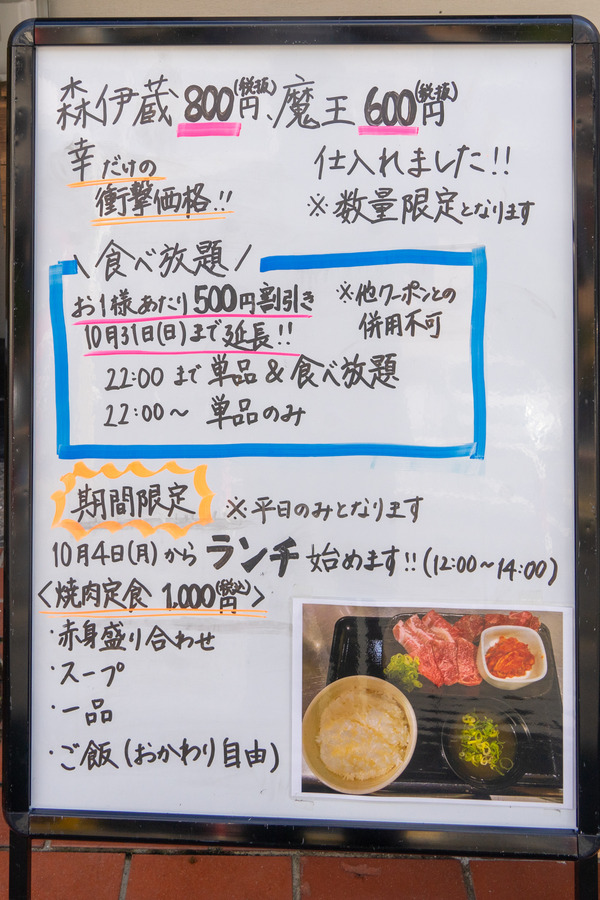 森伊蔵 800円(税抜)、魔王 600円(税抜)
幸だけの
衝撃価格!!
仕入れました!!
※数量限定となります
\食べ放題/
お1様あたり500円割引き
10月31日(日)まで延長!!
※他クーポンとの
併用不可
22:00まで 単品&食べ放題
22:00~ 単品のみ
期間限定
※平日のみとなります
10月4日(月)からランチ始めます!!(12:00~14:00)
<焼肉定食 1.000円(税込)>
・赤身盛り合わせ
・スープ
・一品
・ご飯(おかわり自由)